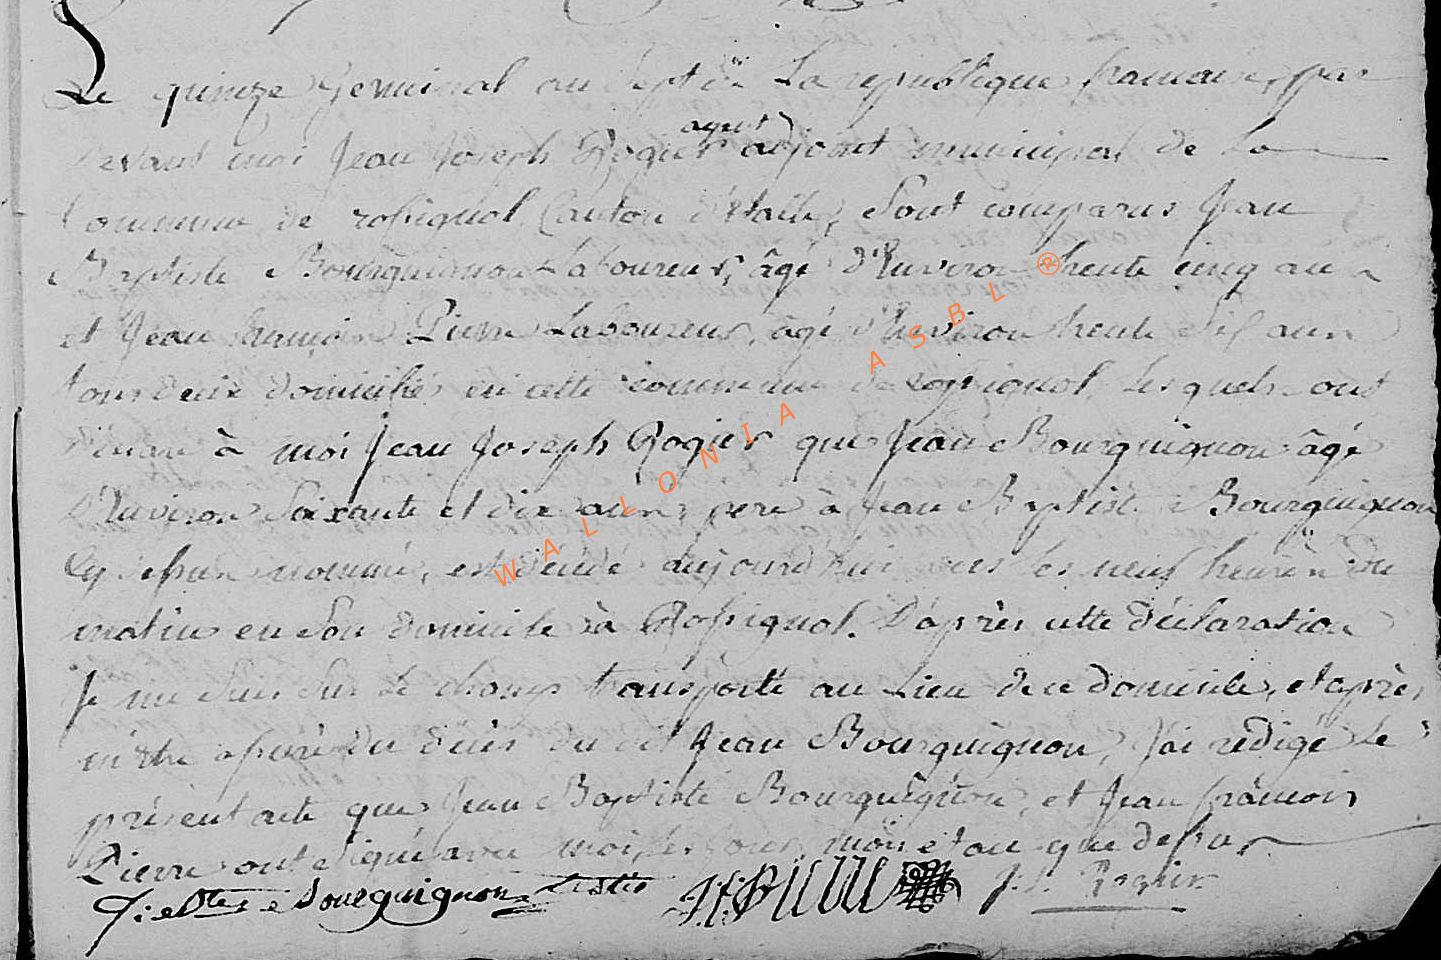 Le quinze Germinal an Sept de La republique francaise, par
devant moi Jean Joseph Rogier agent adjoint municipal de La
Commune de rossignol Canton d'Etalle, Sont comparus Jean
Baptiste Bourguignon Laboureur, âgé d'Environ trente cinq ans
et Jean françois Pierre Laboureur, âgé d'Environ trente six ans
tous deux domiciliés en cette commune de rossignol, Lesquels ont
déclaré à moi Jean Joseph Rogier que Jean Bourguignon âgé
d'Environ Soixante et dix ans, pere à Jean Baptiste Bourguignon
Cy dessus nommé, est décédé aujourd'hui vers les neuf heures du
matin en Son domicile à Rossignol. D'après cette déclaration
Je me Suis Sur Le champ transporté au Lieu de ce domicile, et après
m'être assuré du décès du dit Jean Bourguignon, J'ai rédigé Le
présent acte que Jean Baptiste Bourguignon, et Jean françois
Pierre ont signé avec moi, Les jour, mois et an que dessus
J: e Bte Bourguignon J. J. Rogier
WALLONIA ASBL ®